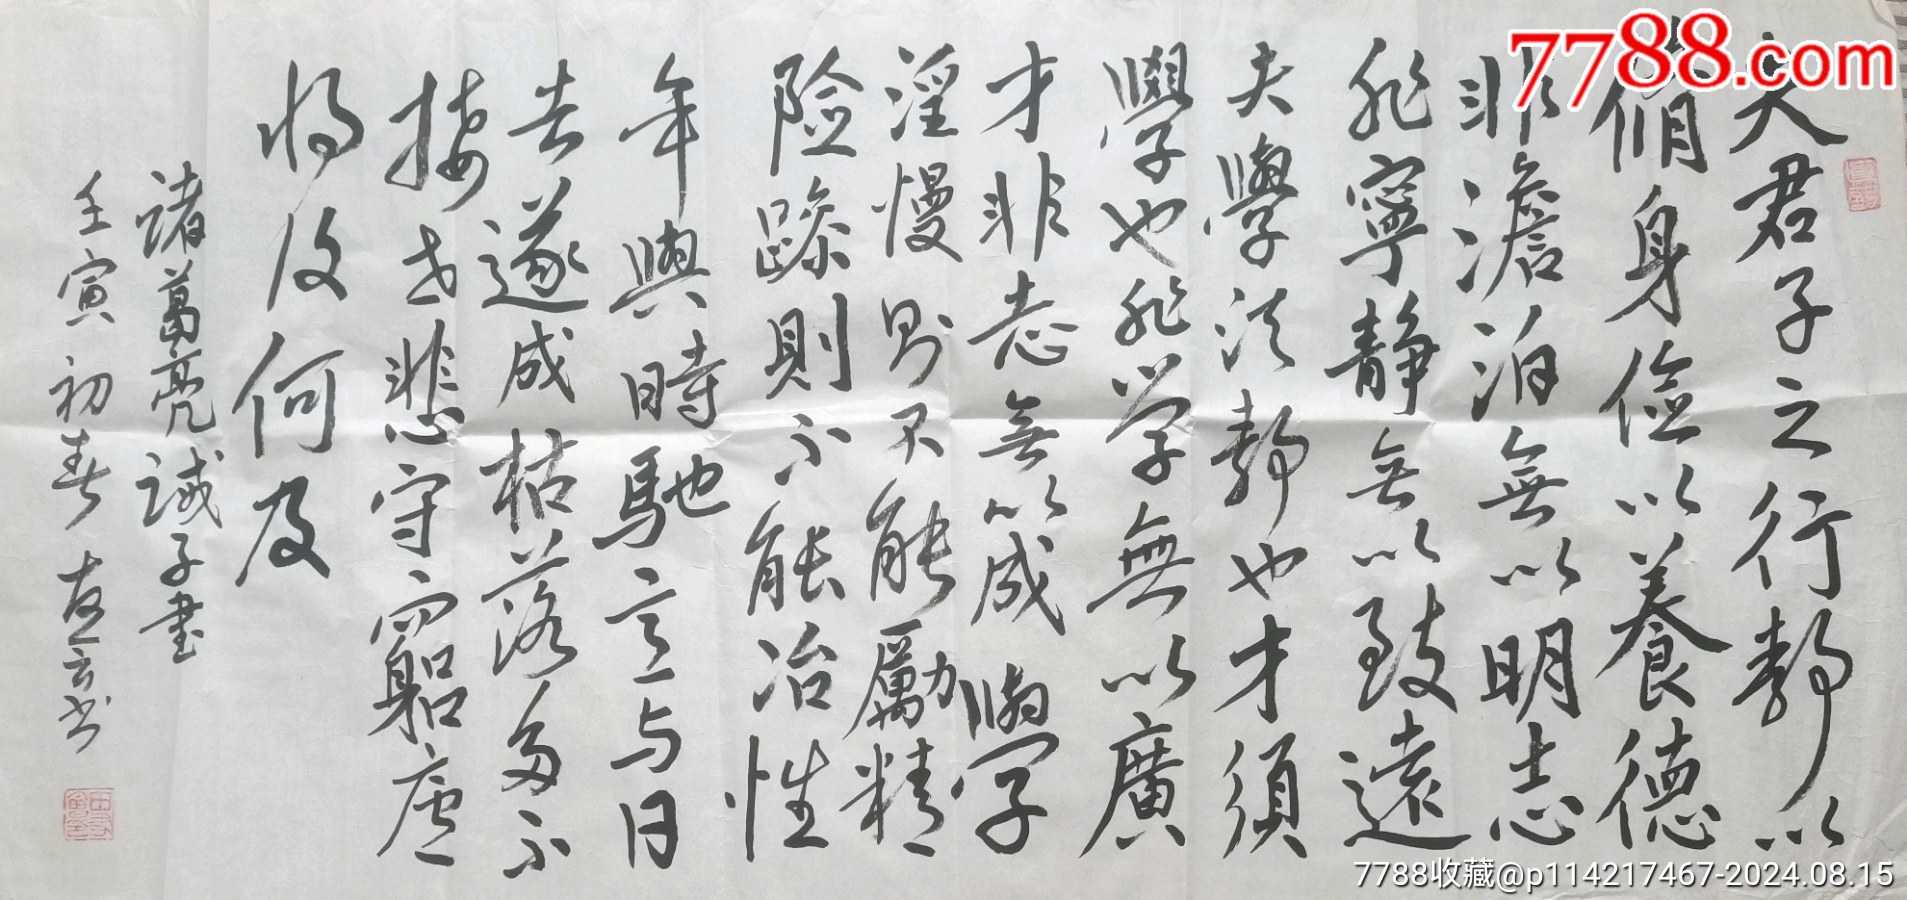 7788.com
夫君子之行静以
脩身儉以養德
非澹泊無以明志
非寧静無以致遠
夫學須静也才須
學也非学無以廣
才非志無以成學
淫慢则不能勵精
险躁則不能冶性
年與時馳意与日
去遂成枯落多不
接世悲守窮廬
将復何及
諸葛亮誡子書
壬寅初春
7788收藏@p114217467-2024.08.15